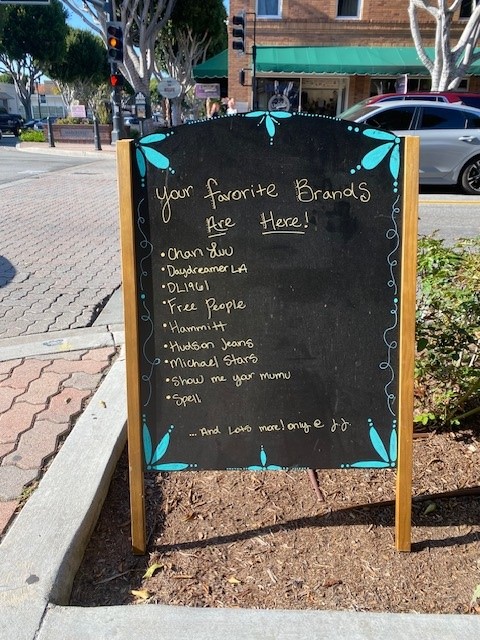 Your favorite Brands
Are Here!
• Chan Luu
• Daydreamer LA
• DL1961
• Free People
• Hammitt
• Hudson Jeans
• Michael Stars
• Show me your mumu
• Spell
... And Lots more! only @ J.J.